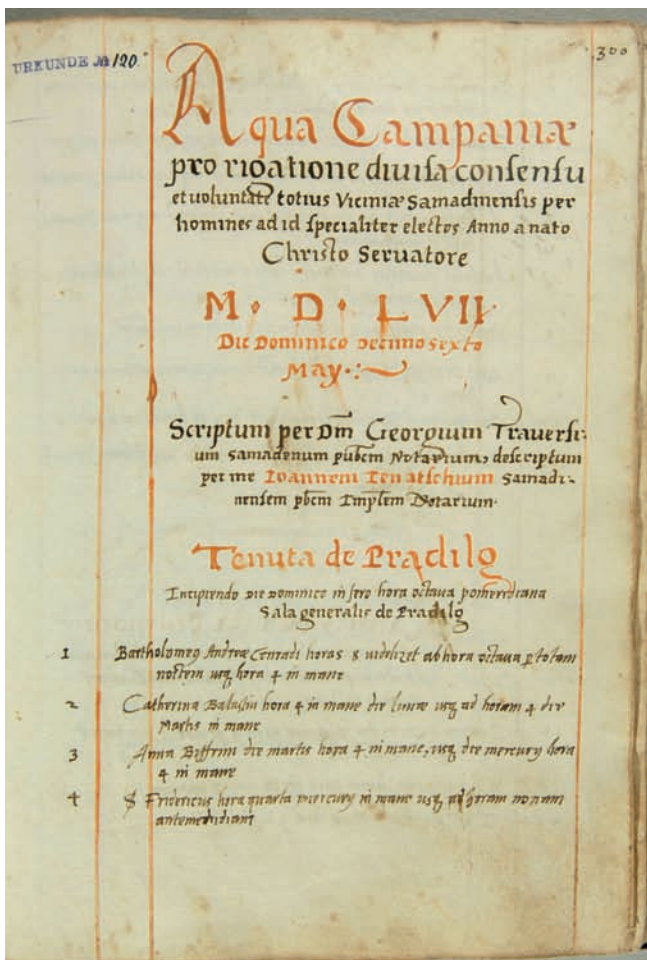 URKUNDE № 120.
300
Aqua Campaniæ
pro rigatione divisa consensu
et voluntate totius Viciniæ Samadinensis per
homines ad id specialiter electos Anno a nato
Christo Servatore
M · D · L VII
Die Dominico decimo sexto
May ·:~
Scriptum per Dm̅ Georgium Traversi-
um Samadenum pub̅cm Notarium, descriptum
per me Ioannem Ienatschium Samadi-
nensem pb̅cm Imp̅lem Notarium.
Tenuta de Pradilg
Incipiendo die dominico in sero hora octava pomerediana
Sala generalis de Pradilg
1 Bartholomeg Andreæ Conradi horas 8 videlizet ab hora octava p totam
noctem usq hora 4 in mane
2 Catherina Balastin hora 4 in mane die lunæ usq ad horam 4 die
Martis in mane
3 Anna Biffruni die martis hora 4 in mane, usq die mercury hora
4 in mane
4 S Fridericus hora quarta mercury in mane usq ad horam nonam
antemeridiam